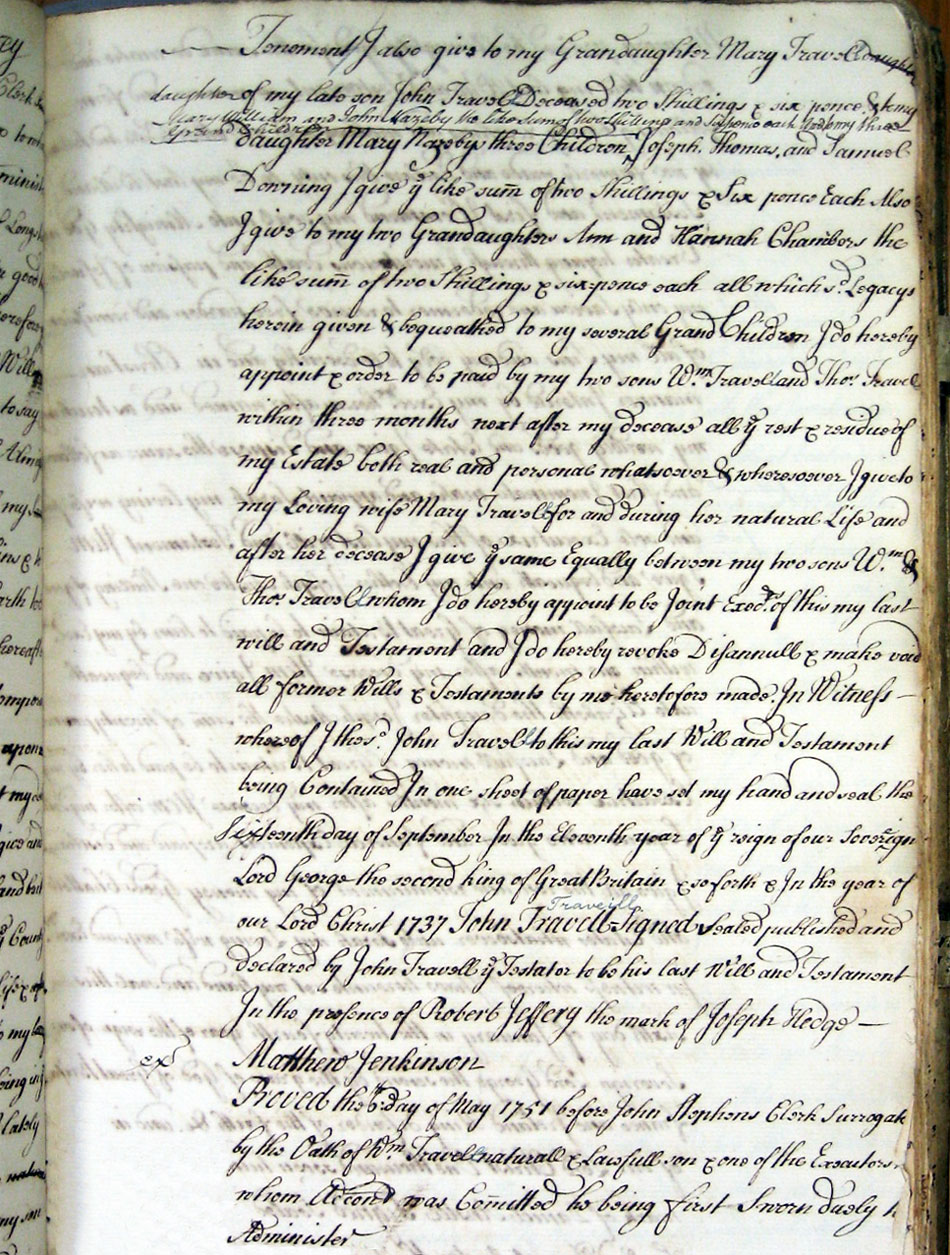 Tenement I also give to my Grandaughter Mary Travell daughter
daughter of my late son John Travell Deceased two Shillings & six pence & to my
Mary William and John Nazeby the like Sum of two Shillings and Six pence each And to my three
Grand Children
daughter Mary Nazebys three Children Joseph, Thomas, and Samuel
Downing I give ye like sum̄ of two Shillings & Six pence Each Also
I give to my two Grandaughters Ann and Hannah Chambers the
like sum̄ of two Shillings & six=pence each all which sd. Legacys
herein given & bequeathed to my several Grand Children I do hereby
appoint & order to be paid by my two sons Wm. Travell and Thos. Travell
within three months next after my decease all ye rest & residue of
my Estate both real and personal whatsoever & wheresoever I give to
my Loving wife Mary Travell for and during her natural Life and
after her decease I give ye same Equally between my two sons Wm. &
Thos. Travell whom I do hereby appoint to be Joint Execrs. of this my last
will and Testament and I do hereby revoke Disannull & make void
all former Wills & Testaments by me heretofore made. In Witness —
whereof I the sd. John Travell to this my last Will and Testament
being Contained In one sheet of paper have set my hand and seal the
Sixteenth day of September In the Eleventh year of ye reign of our Sovereign
Lord George the second king of Great Britain & so forth & In the year of
Traveill
our Lord Christ 1737 John Travell Signed sealed published and
declared by John Travell ye Testator to be his last Will and Testament
In the presence of Robert Jeffery the mark of Joseph Hedge —
exd Matthew Jenkinson
Proved the 6th day of May 1751 before John Stephens Clerk Surrogate
by the Oath of Wm Travell naturall & Lawfull son & one of the Executors
whom Accond was Com̄itted he being first Sworn duely to
Administer